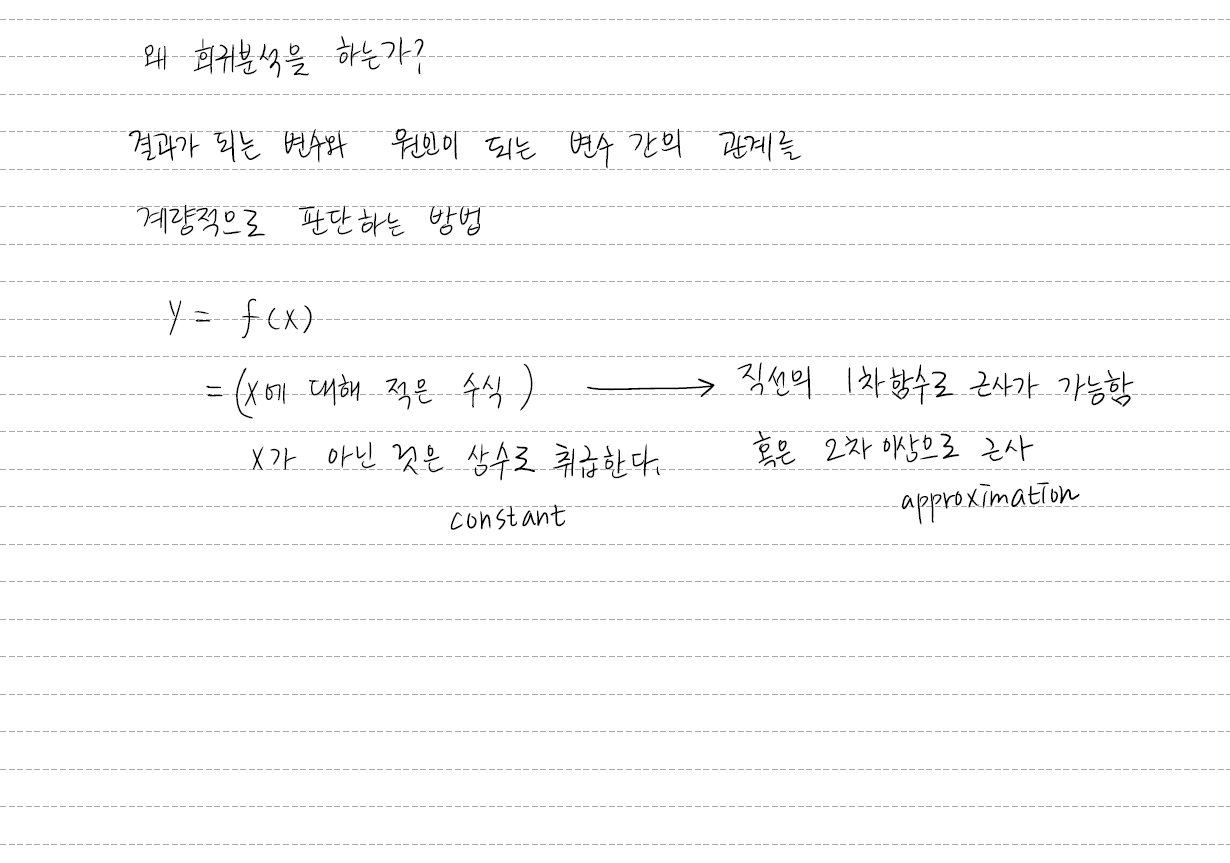 왜 회귀분석을 하는가?
결과가 되는 변수와 원인이 되는 변수 간의 관계를
계량적으로 판단하는 방법
y = f(x)
= (x에 대해 적은 수식) → 직선의 1차함수로 근사가 가능함
x가 아닌 것은 상수로 취급한다. 혹은 2차 이상으로 근사
constant approximation